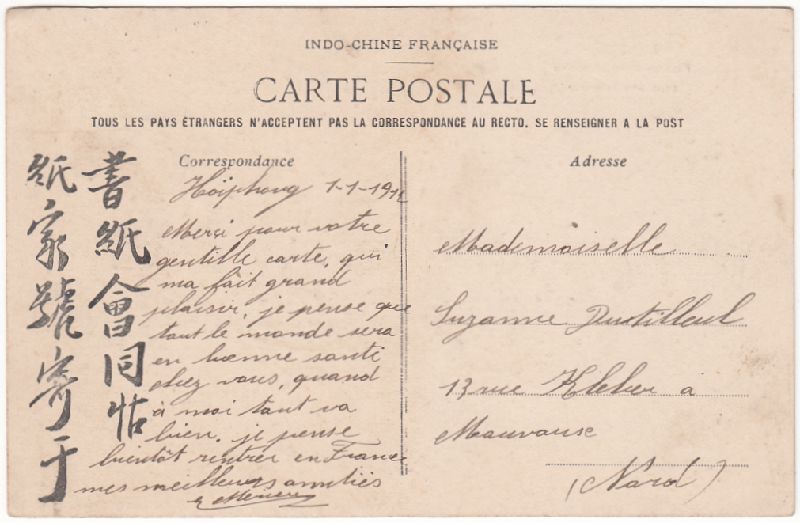 INDO-CHINE FRANÇAISE
CARTE POSTALE
TOUS LES PAYS ÉTRANGERS N'ACCEPTENT PAS LA CORRESPONDANCE AU RECTO. SE RENSEIGNER A LA POST
Correspondance
Haïphong 1-1-1912
Merci pour votre
gentille carte, qui
ma fait grand
plaisir, je pense que
tout le monde sera
en bonne santé
chez vous, quand
à moi tout va
bien, je pense
bientôt rentrer en France
mes meilleurs amitiés
書紙會同
紙家號寄于
Adresse
Mademoiselle
Suzanne Dutilleul
13 rue Kleber à
(Nord)